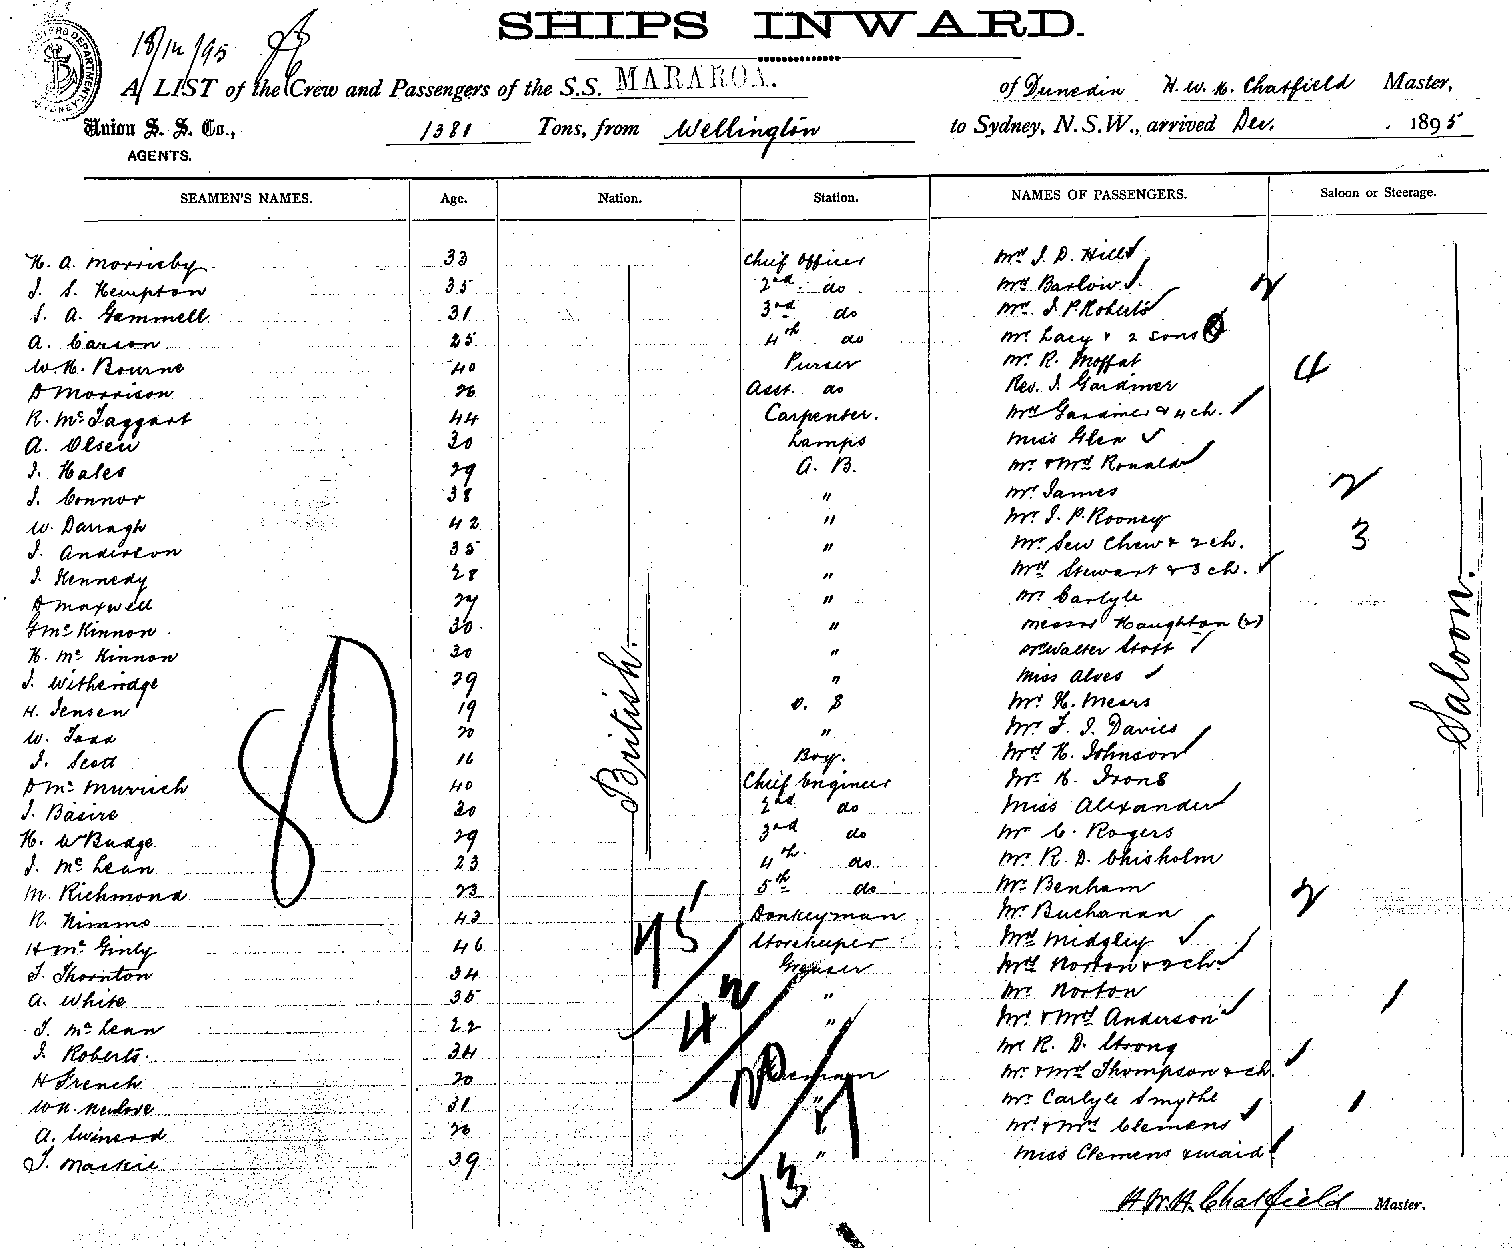 SHIPS INWARD.
18/12/95
A LIST of the Crew and Passengers of the S.S. MARAROA. of Dunedin H. W. H. Chatfield Master,
Union S. S. Co., AGENTS. 1381 Tons, from Wellington to Sydney, N.S.W., arrived Dec. 1895
SEAMEN'S NAMES. Age. Nation. Station. NAMES OF PASSENGERS. Saloon or Steerage.
H. A. Morrisby 33 Chief Officer Mrs J. D. Hill
J. S. Hempton 35 2nd do Mrs Barlow 2
S. A. Gammell 31 3rd do Mrs J. P. Roberts
A. Carson 25 4th do Mr Lacy & 2 sons
W. H. Bourne 40 Purser Mr R. Moffat 4
D Morrison 26 Asst. do Rev. J. Gardiner
R. McTaggart 44 Carpenter. Mrs Gardiner & 4 ch.
A. Olsen 30 Lamps Miss Glen
J. Hales 29 A. B. Mr & Mrs Ronald
J. Connor 38 " Mr James 2
W. Darragh 42 " Mr J. P. Rooney
J. Anderson 35 " Mr Sew Chew & 2 ch. 3
J. Kennedy 28 " Mrs Stewart & 3 ch.
D Maxwell 27 " Mr Carlyle
G McKinnon 30 " Messrs Haughton (2)
H. McKinnon 30 " Mr Walter Stott
J. Witheridge 29 " Miss Alves
H. Jensen 19 O. S Mr H. Mears
W. Todd 20 " Mr F. J. Davies
J. Scott 16 Boy. Mrs H. Johnson
D McMurrich 40 Chief Engineer Mr H. Irons
J. Basire 30 2nd do Miss Alexander
H. W Budge 29 3rd do Mr C. Rogers
J. McLean 23 4th do Mr R. D. Chisholm
M. Richmond 23 5th do Mr Benham 2
R. Nimmo 43 Donkeyman Mr Buchanan
H McGinly 46 Storekeeper Mrs Midgley
T. Thornton 34 Greaser Mrs Norton & 2 ch.
A. White 35 " Mr Norton 1
J. McLean 22 " Mr & Mrs Anderson
J. Roberts 34 Mr R. D. Strong
H French 20 Fireman Mr & Mrs Thompson & ch.
31 " Mr Carlyle Smythe 1
A. 26 " Mr & Mrs Clemens
J. Mackie 39 " Miss Clemens & maid
British.
Saloon.
80
75
42
20
13
H. W. H. Chatfield Master.